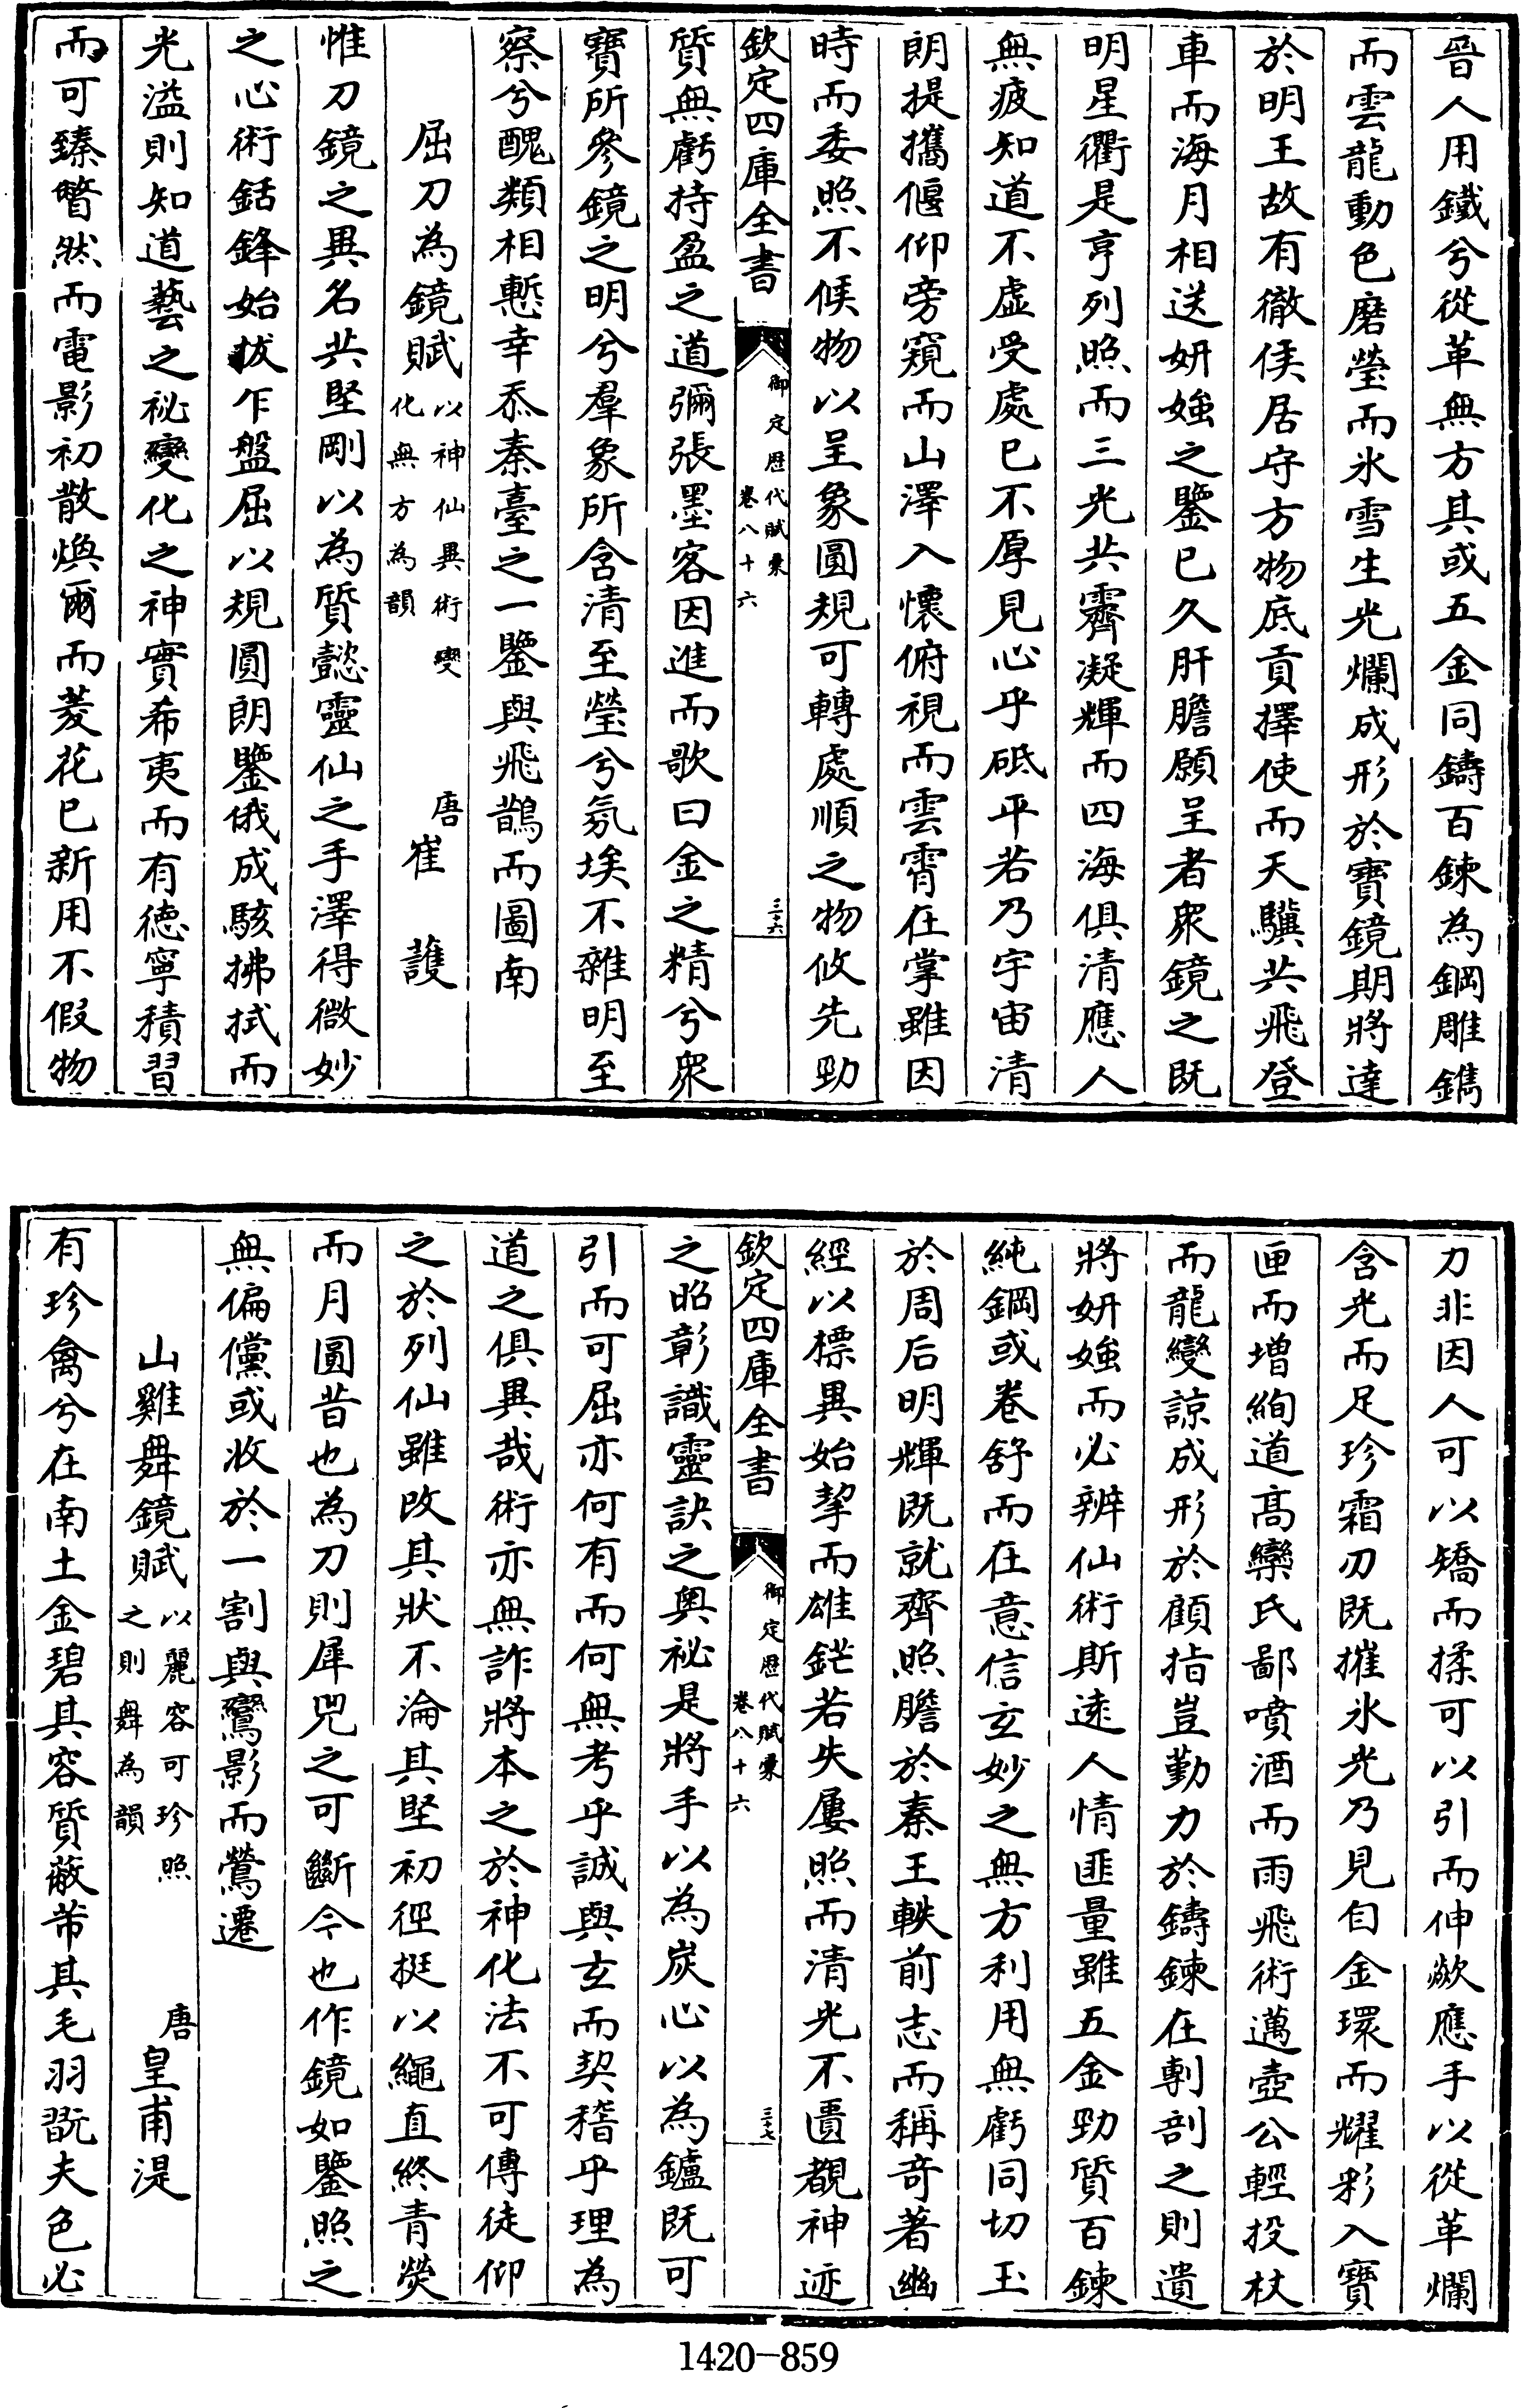 晉人用鐵兮從革無方其或五金同鑄百鍊為鋼雕鐫
而雲龍動色磨瑩而氷雪生光爛成形於寶鏡期將達
於明王故有徹侯居守方物底貢擇使而天驥共飛登
車而海月相送妍媸之鑒已久肝膽願呈者衆鏡之既
明星衢是亨列照而三光共霽凝輝而四海俱清應人
無疲知道不虛受處已不厚見心乎砥平若乃宇宙清
朗提攜偃仰旁窺而山澤入懷俯視而雲霄在掌雖因
時而委照不候物以呈象圓規可轉處順之物攸先勁
欽定四庫全書
御定歴代賦彙
卷八十六
三十六
質無虧持盈之道彌張墨客因進而歌曰金之精兮衆
寶所參鏡之明兮羣象所含清至瑩兮氛埃不雜明至
察兮醜類相慙幸忝秦臺之一鑒與飛鵲而圖南
屈刀為鏡賦以神仙異術變化無方為韻 唐崔護
惟刀鏡之異名共堅剛以為質懿靈仙之手澤得微妙
之心術銛鋒始拔乍盤屈以規圓朗鑒俄成駭拂拭而
光溢則知道藝之祕變化之神實希夷而有徳寧積習
而可臻瞥然而電影初散煥爾而菱花已新用不假物
力非因人可以矯而揉可以引而伸歘應手以從革爛
含光而足珍霜刃既摧氷光乃見自金環而耀彩入寶
匣而増絢道髙欒氏鄙噴酒而雨飛術邁壺公輕投杖
而龍變諒成形於顧指豈勤力於鑄鍊在剸剖之則遺
將妍媸而必辨仙術斯逺人情匪量雖五金勁質百鍊
純鋼或卷舒而在意信玄妙之無方利用無虧同切玉
於周后明輝既就齊照膽於秦王軼前志而稱奇著幽
經以標異始挈而雄鋩若失屢照而清光不匱覩神迹
欽定四庫全書
御定歴代賦彙
卷八十六
三十七
之昭彰識靈訣之奥祕是將手以為炭心以為鑪既可
引而可屈亦何有而何無考乎誠與玄而契稽乎理為
道之俱異哉術亦無詐將本之於神化法不可傳徒仰
之於列仙雖改其狀不淪其堅初徑挺以繩直終青熒
而月圓昔也為刀則犀兕之可斷今也作鏡如鑒照之
無偏儻或收於一割與鸞影而鶯遷
山雞舞鏡賦以麗容可珍照之則舞為韻 唐皇甫湜
有珍禽兮在南土金碧其容質蔽芾其毛羽翫夫色必
1420-859